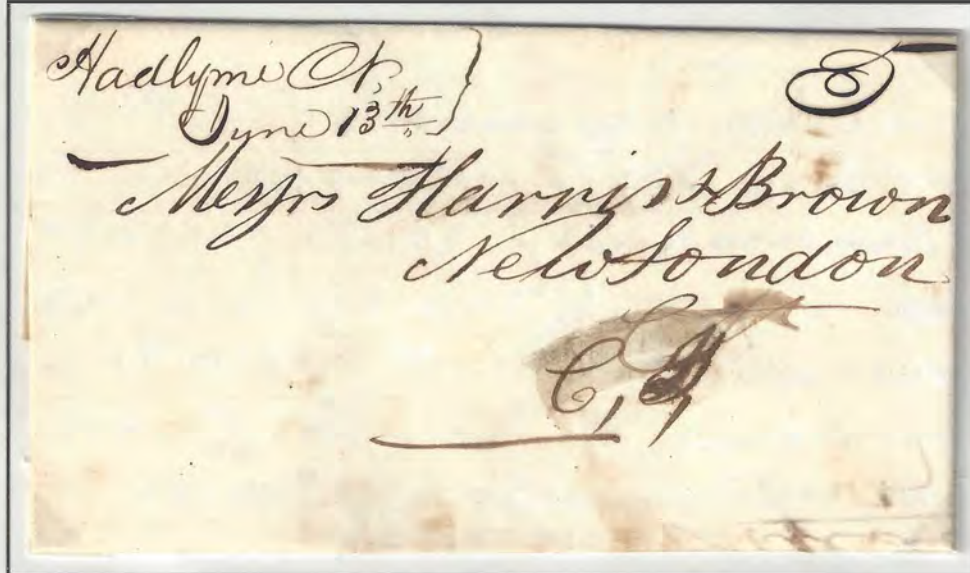 Hadlyme Ct,
June 13th
5
Messrs Harris & Brown
New London
C, T,